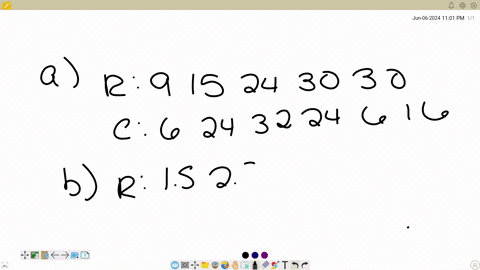 Jun-06-2024 11:01 PM 1/1
a) R: 9 15 24 30 30
C: 6 24 32 24 6 16
b) R: 1.5 2.